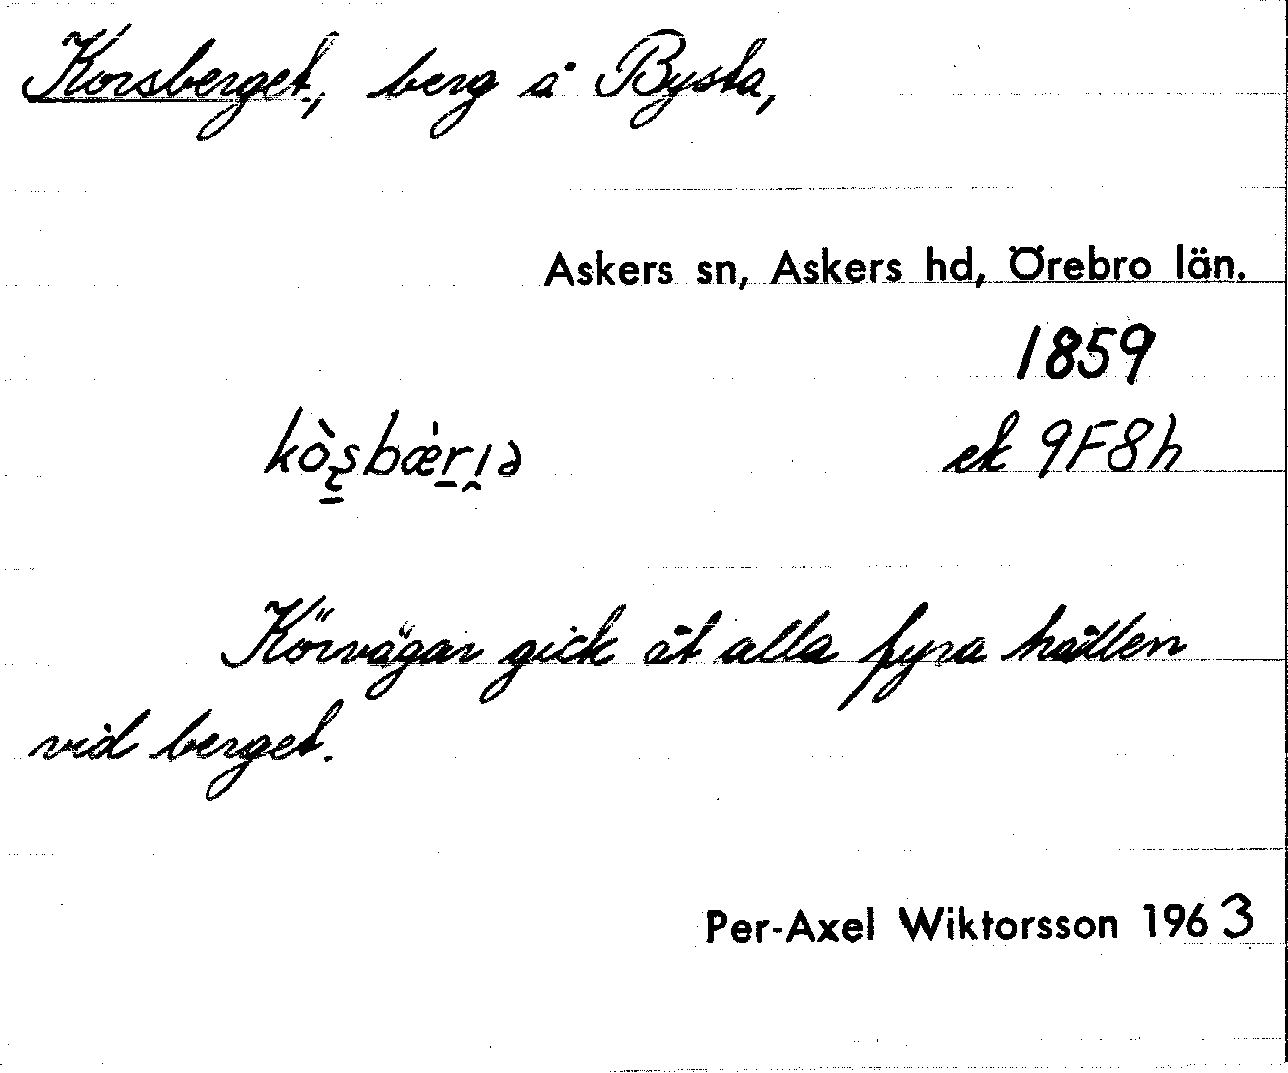 Korsberget, berg å Bysta,
Askers sn, Askers hd, Örebro län.
1859
kòs̠bæ̀r̠ı̯ə ek 9F8h
Körvägar gick åt alla fyra hållen
vid berget.
Per-Axel Wiktorsson 1963